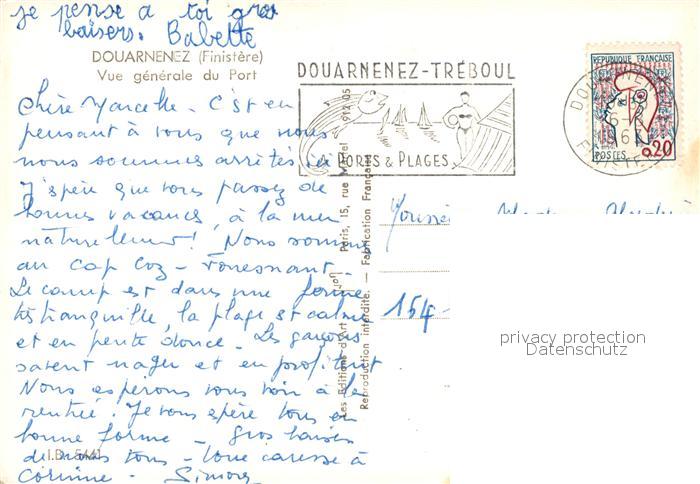 je pense a toi gros
baisers. Babette
DOUARNENEZ (Finistère)
Vue générale du Port
Chère Marcelle - C'est en
pensant à vous que nous
nous sommes arrêtés ici
J'espère que vous passez de
bonnes vacances, à la mer
naturellement! Nous sommes
au cap Coz - Fouesnant -
Le camp est dans une ferme
très tranquille, la plage est calme
et en pente douce - Les garçons
savent nager et en profitent
Nous espérons vous voir à la
rentrée. Je vous espère tous en
bonne forme - gros baisers
de nous tous - Une caresse à
Corinne - Simone
I.D. 5441
DOUARNENEZ-TRÉBOUL
PORTS & PLAGES
REPUBLIQUE FRANÇAISE
POSTES 0,20
DOUARNENEZ
1967
FINISTERE
Les Editions d'Art Paris, 15, rue Martel 912 05
Reproduction interdite. — Fabrication Française
154-
privacy protection
Datenschutz